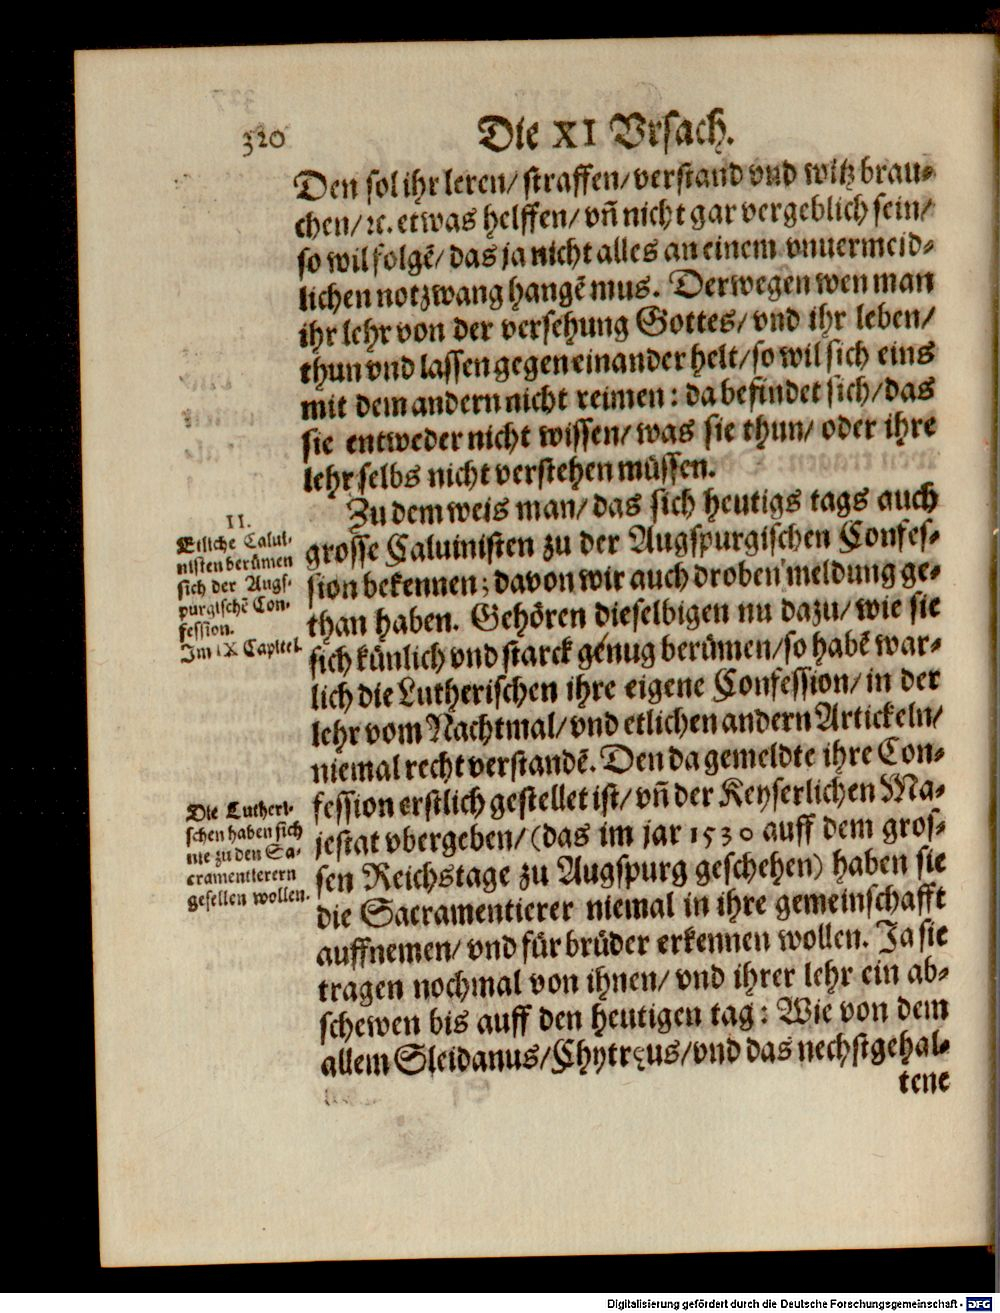 320
Die XI Vrsach.
Den sol ihr leren/ straffen/ verstand vnd witz brau⸗
chen/ ꝛc. etwas helffen/ vñ nicht gar vergeblich sein/
so wil folgẽ/ das ja nicht alles an einem vnuermeid⸗
lichen notzwang hangẽ mus. Derwegen wen man
ihr lehr von der versehung Gottes/ vnd ihr leben/
thun vnd lassen gegen einander helt/ so wil sich eins
mit dem andern nicht reimen: da befindet sich/ das
sie entweder nicht wissen/ was sie thun/ oder ihre
lehr selbs nicht verstehen müssen.
II.
Etliche Calui⸗
nisten berümen
sich der Augs⸗
purgischẽ Con⸗
fession.
Im IX Capitel.
Zu dem weis man/ das sich heutigs tags auch
grosse Caluinisten zu der Augspurgischen Confes⸗
sion bekennen; davon wir auch droben meldung ge⸗
than haben. Gehören dieselbigen nu dazu/ wie sie
sich künlich vnd starck genug berümen/ so habẽ war⸗
lich die Lutherischen ihre eigene Confession/ in der
lehr vom Nachtmal/ vnd etlichen andern Artickeln/
niemal recht verstandẽ. Den da gemeldte ihre Con⸗
Die Lutheri⸗
schen haben sich
nie zu den Sa⸗
cramentierern
gesellen wollen.
fession erstlich gestellet ist/ vñ der Keyserlichen Ma⸗
jestat vbergeben/ (das im jar 1530 auff dem gros⸗
sen Reichstage zu Augspurg geschehen) haben sie
die Sacramentierer niemal in ihre gemeinschafft
auffnemen/ vnd für brüder erkennen wollen. Ja sie
tragen nochmal von ihnen/ vnd ihrer lehr ein ab⸗
schewen bis auff den heutigen tag: Wie von dem
allem Sleidanus/ Chytręus/ vnd das nechstgehal⸗
tene
Digitalisierung gefördert durch die Deutsche Forschungsgemeinschaft - DFG